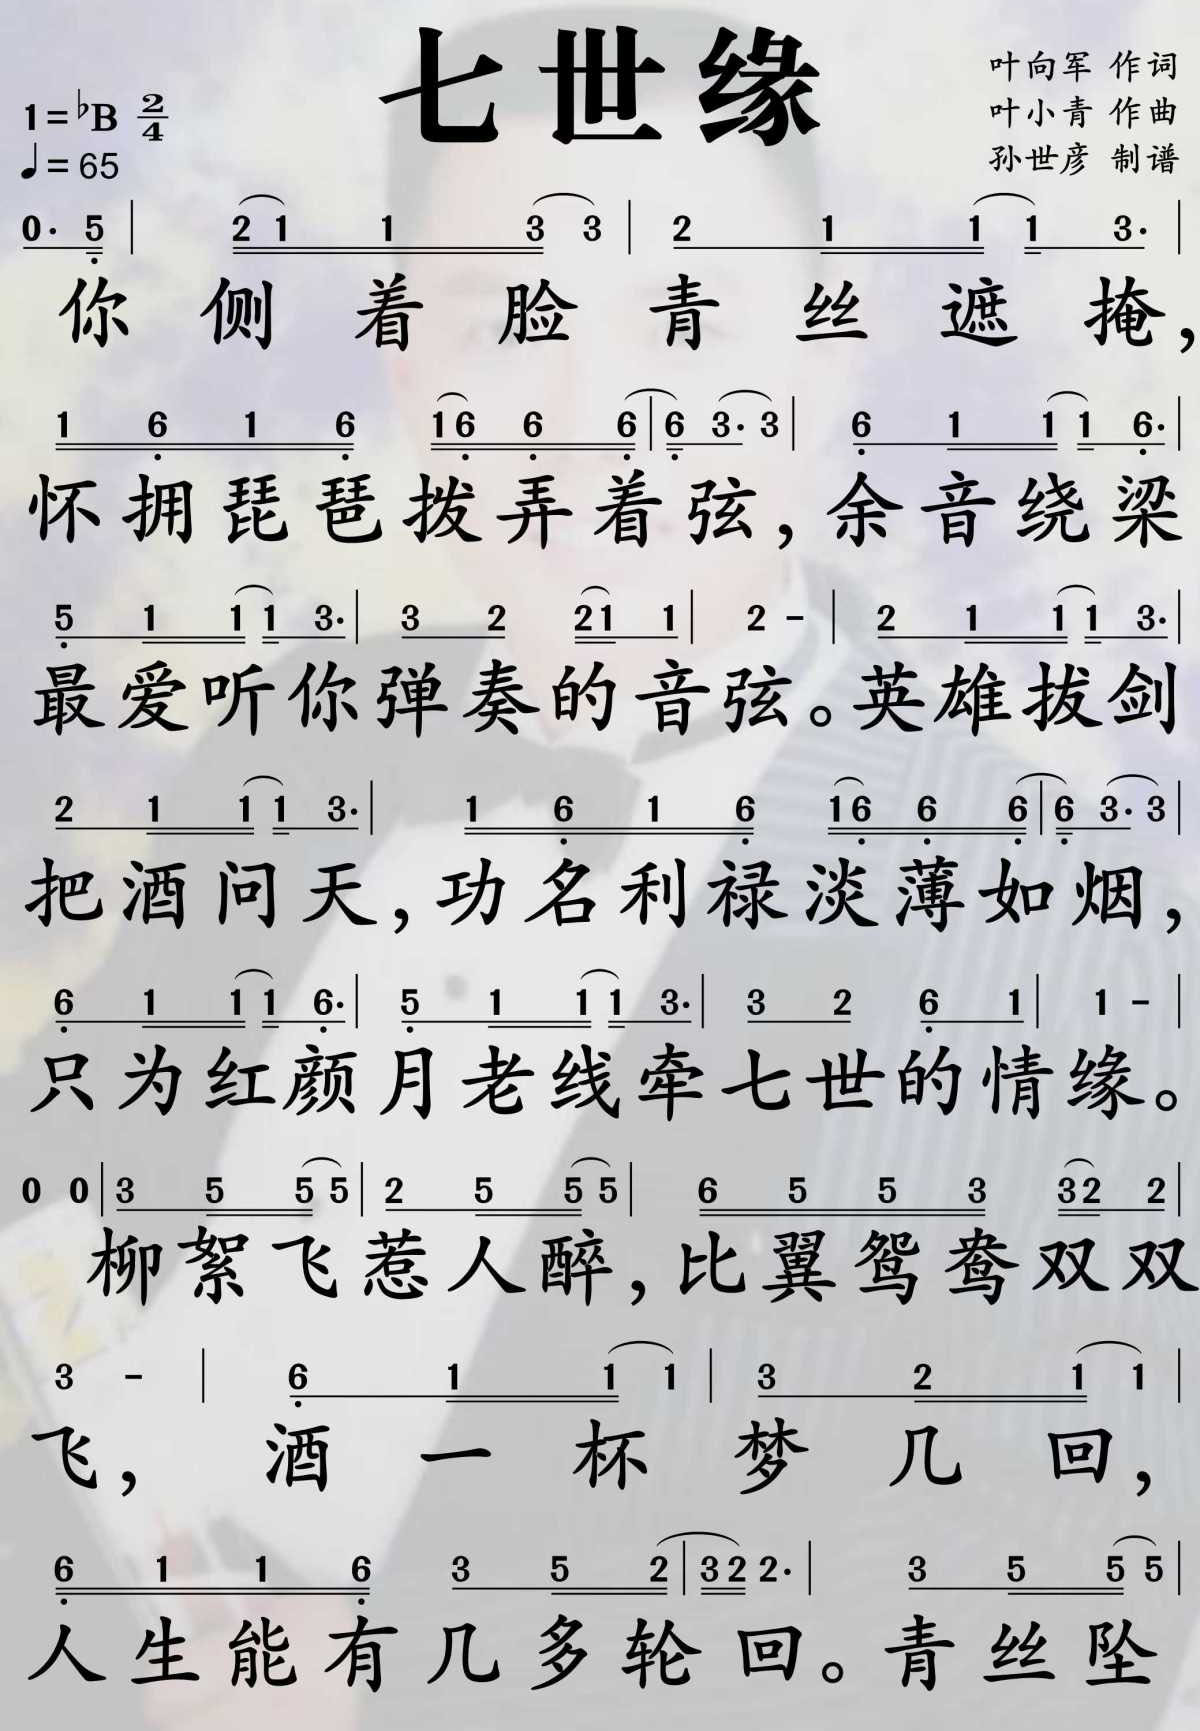 七世缘
叶向军 作词
叶小青 作曲
孙世彦 制谱
1=♭B 2/4
♩=65
0· 5 | 2 1 1 3 3 | 2 1 1 1 3· |
你侧着脸青丝遮掩,
1 6 1 6 1 6 6 6 | 6 3· 3 | 6 1 1 1 6· |
怀拥琵琶拨弄着弦,余音绕梁
5 1 1 1 3· | 3 2 2 1 1 | 2 - | 2 1 1 1 3· |
最爱听你弹奏的音弦。英雄拔剑
2 1 1 1 3· | 1 6 1 6 1 6 6 6 | 6 3· 3 |
把酒问天,功名利禄淡薄如烟,
6 1 1 1 6· | 5 1 1 1 3· | 3 2 6 1 | 1 - |
只为红颜月老线牵七世的情缘。
0 0 | 3 5 5 5 | 2 5 5 5 | 6 5 5 3 3 2 2 |
柳絮飞惹人醉,比翼鸳鸯双双
3 - | 6 1 1 1 | 3 2 1 1 |
飞,酒一杯梦几回,
6 1 1 6 3 5 2 | 3 2 2· | 3 5 5 5 |
人生能有几多轮回。青丝坠